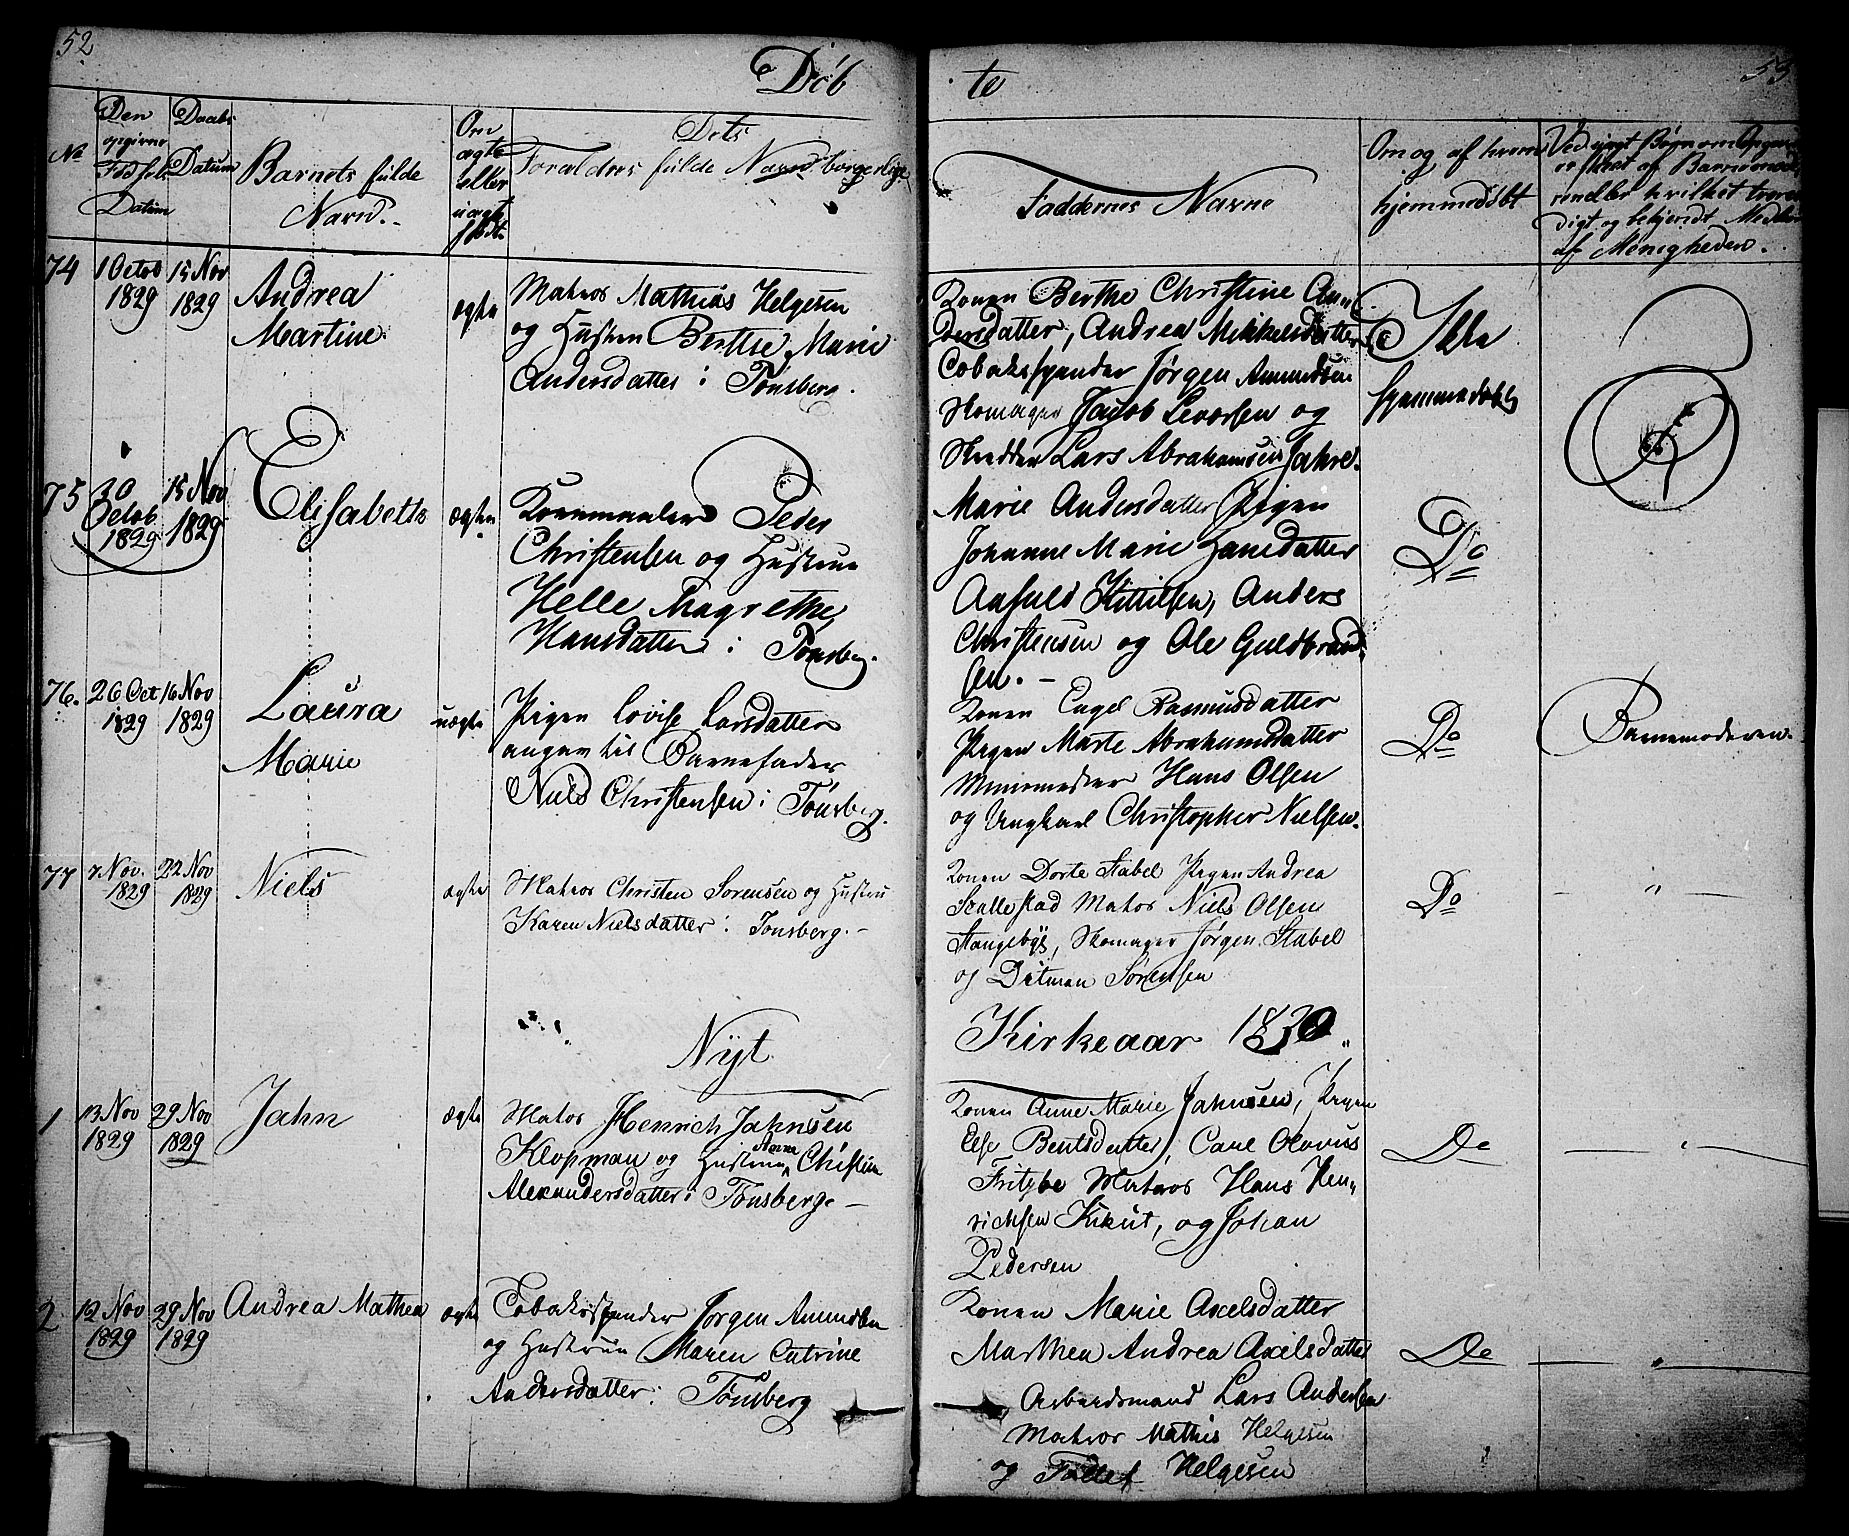 52
Døb
te
53
No
Den
opgivne
Fødsels
Datum
Daabs
Datum
Barnets fulde
Navn.
Om
ægte
eller
uægte
født.
Dets
Forældres fulde Navn borgerlige
Faddernes Navne
Om og af hvem
hjemmedøbt
Ved uægt Børn om Opgave
er skeet af Barnemode
ren eller hvilket trovær
digt og bekjendt Medlem
af Menigheden.
74
1 Octob
1829
15 Nov
1829
Andrea
Martine
ægte
Matros Mathias Helgesen
og Hustru Berthe Marie
Andersdatter i Tønsberg.
Konen Berthe Christine An
dersdatter, Andrea Mikkelsdatter
Tobaksspinder Jørgen Amundsen
Skomager Jacob Levorsen og
Skrædder Lars Abrahamsen Jahre.
Ikke
hjemmedøbt
75
30
Octob
1829
15 Nov
1829
Elisabeth
ægte
Kornmaaler Peder
Christensen og Hustrue
Helle Magrethe
Hansdatter i Tønsberg.
Marie Andersdatter Pigen
Johanne Marie Hansdatter
Kittilsen, Anders
Christensen og Ole Guldbrand
sen. —
Do
76.
26 Oct
1829
16 Nov
1829
Laura
Marie
uægte
Pigen Lovise Larsdatter
angav til Barnefader
Niels Christensen i Tønsberg.
Konen Engel Rasmusdatter
Pigen Marte Abrahamsdatter
Hans Olsen
og Ungkarl Christopher Nielsen.
Do
Barnemoderen.
77
7 Nov.
1829
22 Nov
1829
Niels
ægte
Matros Christen Sørensen og Hustru
Karen Nielsdatter i Tønsberg. —
Konen Dorte Stabel Pigen Andrea
Skallestad Matos Niels Olsen
Stangebye, Skomager Jørgen Stabel
og Ditman Sørensen
Do
— " —
Nyt
Kirkeaar 1830
1
13 Nov
1829
29 Nov
1829
Jahn
ægte
Matos Henrich Jahnsen
Klopman og Hustrue Anne Christine
Alexandersdatter i Tønsberg. —
Konen Anne Marie Jahnsen, Pigen
Else Bentsdatter, Carl Olavus
Fritzøe Matros Hans Hen
richsen Kikut, og Johan
Pedersen
Do
— " —
2
12 Nov
1829
29 Nov
1829
Andrea Mathea
ægte
Tobaksspinder Jørgen Amundsen
og Hustrue Maren Catrine
Andersdatter i Tønsberg
Konen Marie Axelsdatter
Marthea Andrea Axelsdatter
Arbeidsmand Lars Andersen
Matros Mathis Helgesen
og Tollef Helgesen
Do
— " —